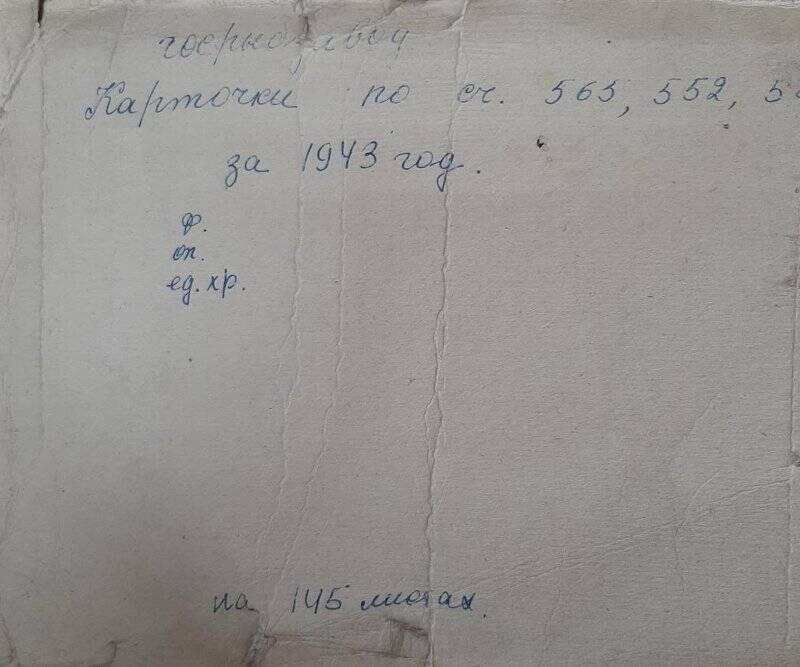 Карточки по сч. 565, 552, 5
за 1943 год.
ф.
оп.
ед. хр.
на 145 листах.